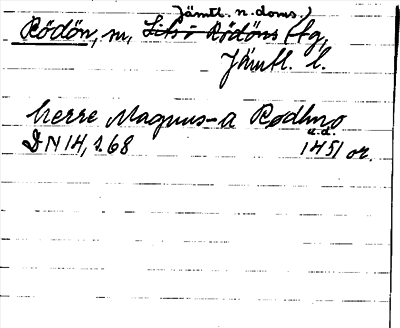 Jämtl. n. doms.,
Rödön, sn, Lits o Rödöns tlg,
Jämtl. l.
herre Magnus a Rødhno
u.d.
DN 14, s. 68 1451 or.